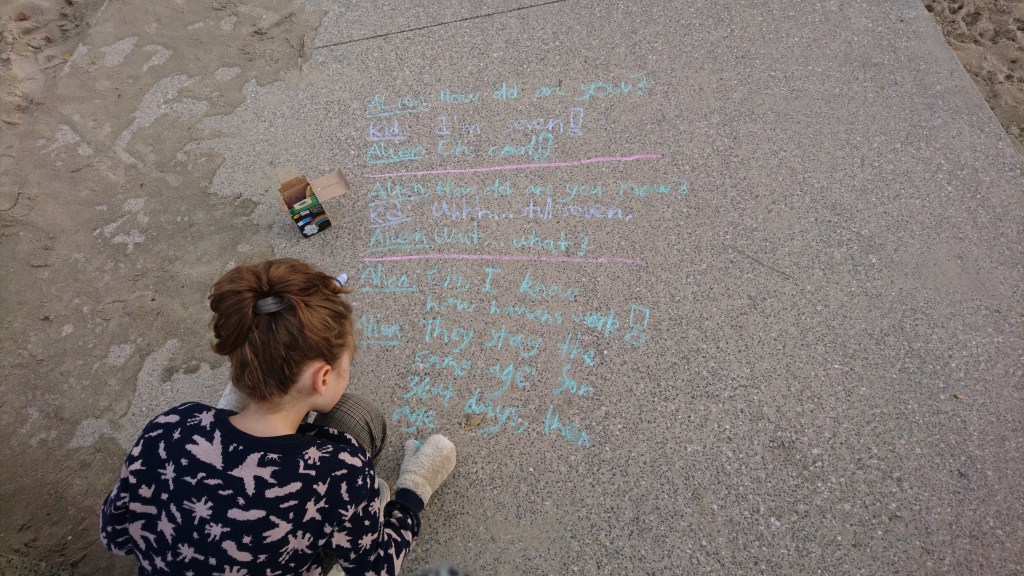 Alien: How old are you?
Kid: I'm seven!
Alien: Oh, cool!
Alien: How old are you now?
Kid: Uhhh... still seven.
Alien: Wait... what?
Alien: Oh, I know
how humans work!
Alien: They stay the
same age for
364 days, then
age